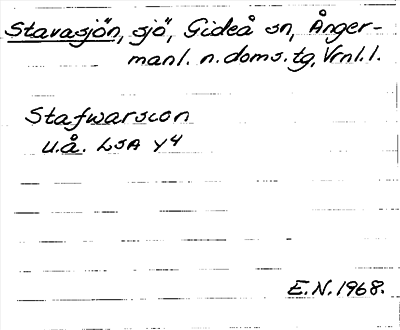 Stavasjön, sjö, Gideå sn, Ånger-
manl. n. doms. tg, Vrnl. l.
Stafwarsion
u.å. LSA Y4
E.N. 1968.